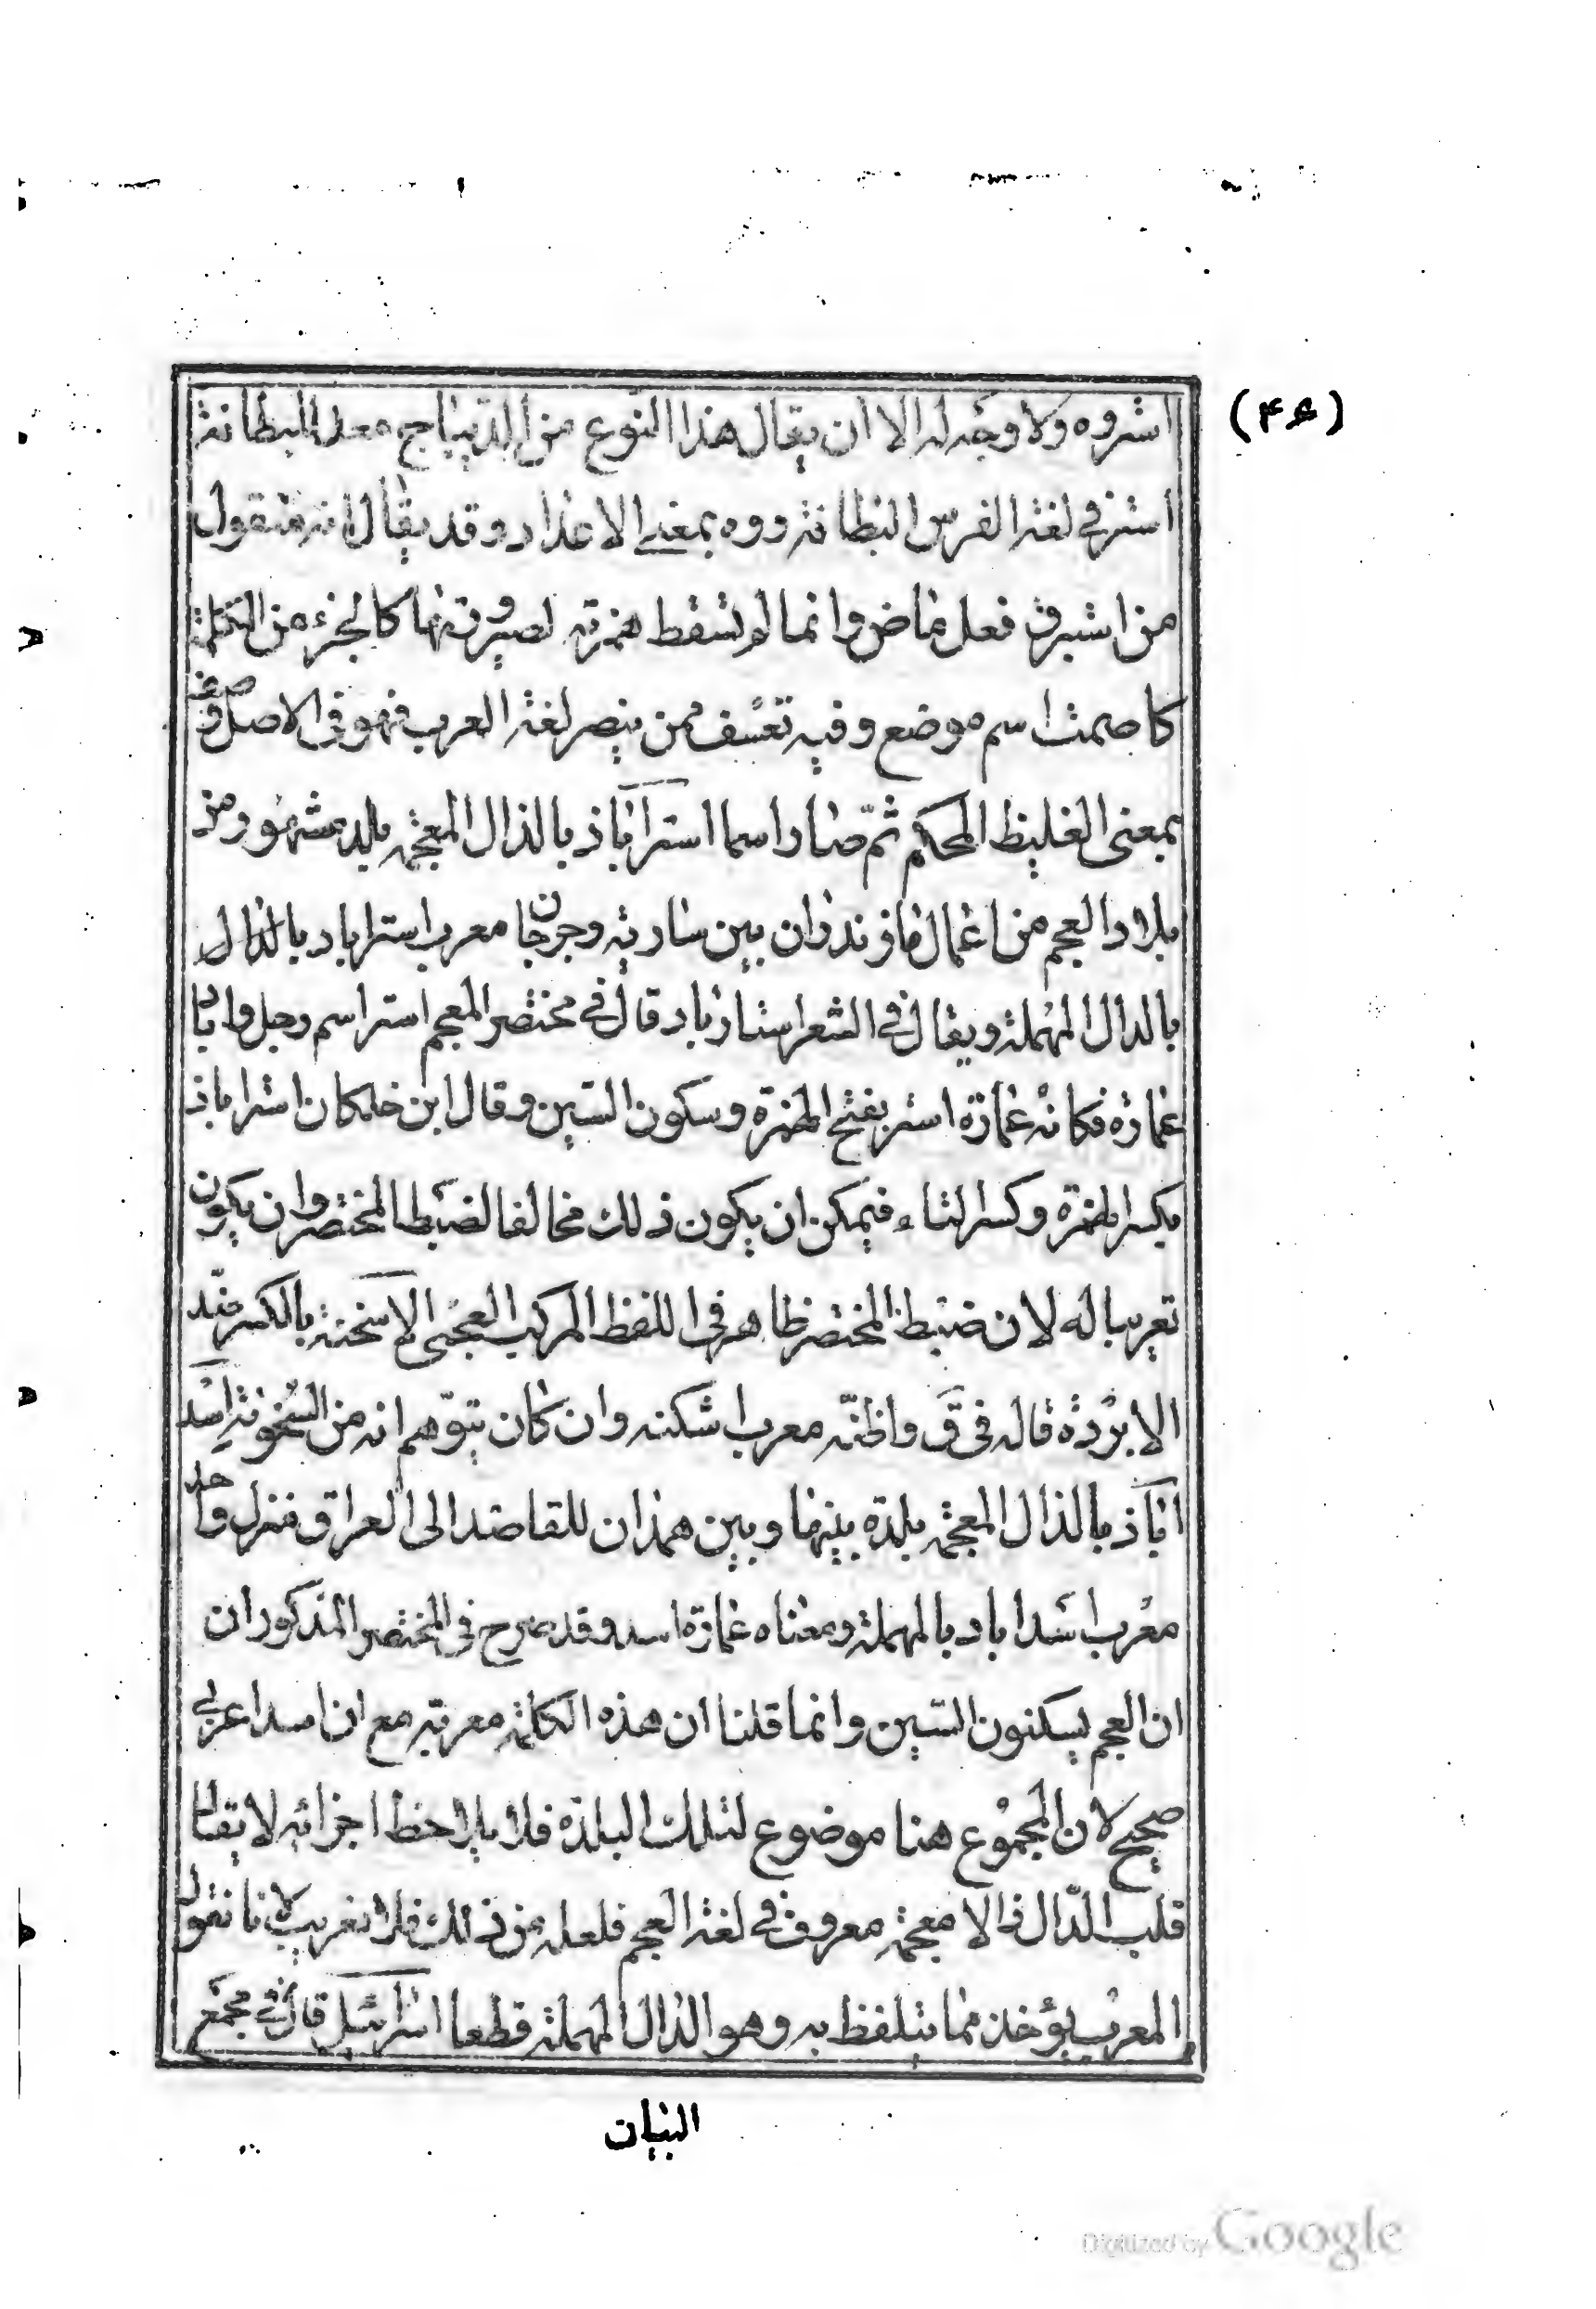 (۴۶)
استروه ولا وجه له الا ان يقال هذا النوع من الديباج معد للبطانة
استر في لغة الفرس البطانة ووه بمعنى الاعداد وقد يقال انه منقول
من استبرق فعل ماض وانما لم تسقط همزته لصيرورتها كالجزء من الكلمة
كاصمت اسم موضع وفيه تعسف ممن ينصر لغة العرب فهو في الاصل صفة
بمعنى الغليظ المحكم ثم صار اسما استراباذ بالذال المعجمة بلد مشهور من
بلاد العجم من اعمال مازندران بين سارية وجرجان معرب استراباد بالدال
بالدال المهملة ويقال في الشعر استارباد قال في مختصر المعجم استر اسم رجل واباد
عمارة فكانه عمارة استر بفتح الهمزة وسكون السين وقال ابن خلكان استراباذ
بكسر الهمزة وكسر التاء فيمكن ان يكون ذلك مخالفا لضبط المختصر وان يكون
تعريبا له لان ضبط المختصر ظاهر في اللفظ المركب العجمي الاسخنة بالكسر ضد
الابردة قاله في ق واظنه معرب اشكنه وان كان يتوهم انه من السخونة اسد
اباذ بالذال المعجمة بلدة بينها وبين همذان للقاصد الى العراق منزل واحد
معرب اسداباد بالمهملة ومعناه عمارة اسد وقد صرح في المختصر المذكور ان
ان العجم يسكنون السين وانما قلنا ان هذه الكلمة معربة مع ان اسدا عربي
صحيح لان المجموع هنا موضوع لتلك البلدة فلا يلاحظ اجزائه لا يقال
قلب الدال ذالا معجمة معروف في لغة العجم فلعله من ذلك فلا تعريب لانا نقول
المعرب يؤخذ مما يتلفظ به وهو الدال المهملة قطعا اسرائيل قال في مجمع
البيان
Digitized by Google